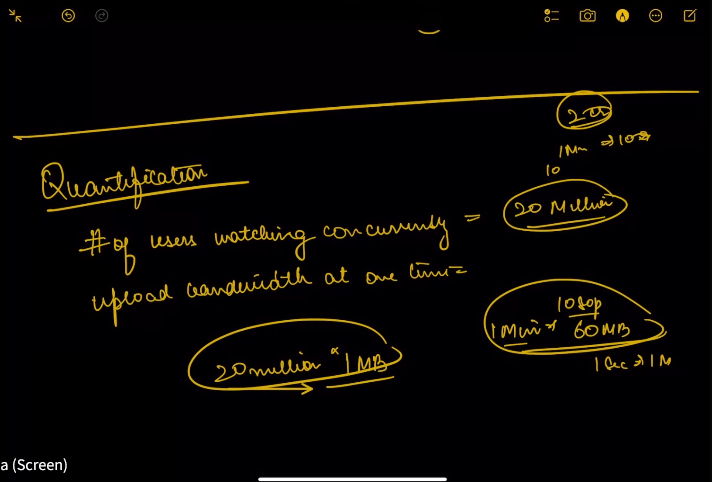 2cr
1Mn => 10
10
Quantification
# of users watching concurrently = 20 Million
upload bandwidth at one time =
1080p
1 Min => 60 MB
20 million * 1 MB
1 Sec => 1 M
a (Screen)